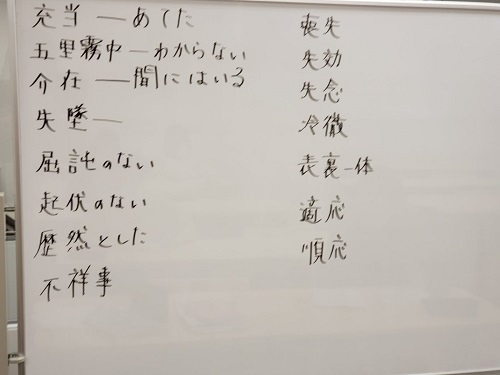 充当 ― あてた
五里霧中 ― わからない
介在 ― 間にはいる
失墜 ―
屈託のない
起伏のない
歴然とした
不祥事
喪失
失効
失念
冷徹
表裏一体
適応
順応